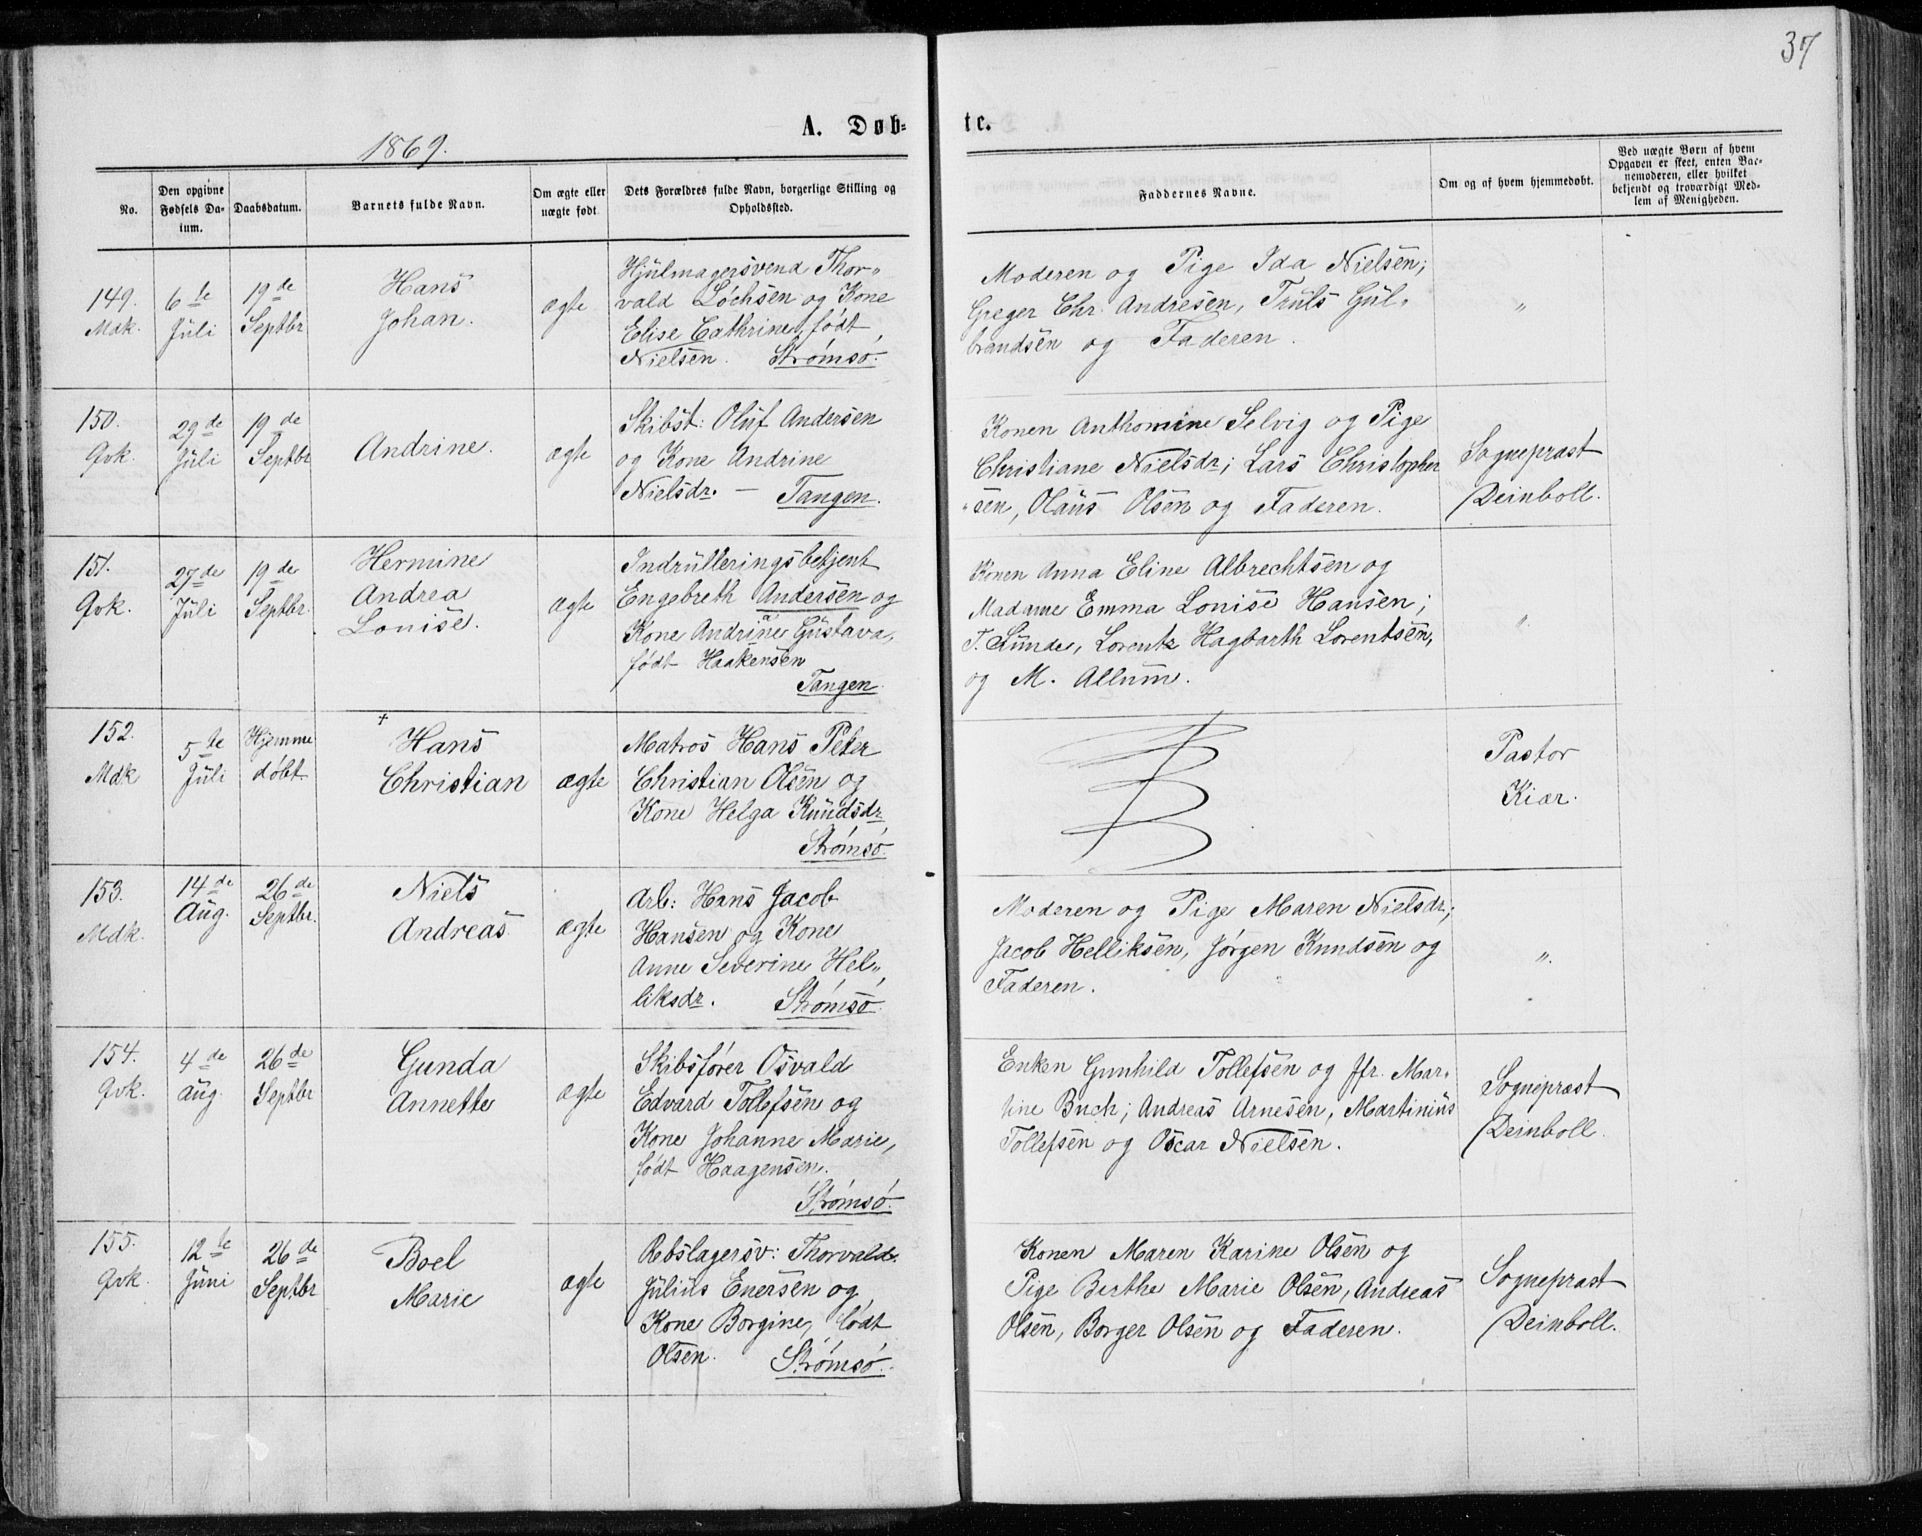 37
1869.
A. Døb-
te.
No.
Den opgivne Fødsels Da-
tum.
Daabsdatum.
Barnets fulde Navn.
Om ægte eller
uægte født.
Dets Forældres fulde Navn, borgerlige Stilling og
Opholdssted.
Faddernes Navne.
Om og af hvem hjemmedøbt.
Ved uægte Børn af hvem
Opgaven er skeet, enten Bar-
nemoderen, eller hvilket
bekjendt og troværdigt Med-
lem af Menigheden.
149.
Mdk.
6te
Juli
19de
Septbr
Hans
Johan.
ægte
Hjulmagersvend Thor-
vald Løchsen og Kone
Elise Cathrine, født
Nielsen. Strømsø.
Moderen og Pige Ida Nielsen;
Greger Chr. Andresen, Truls Gul-
brandsen og Faderen.
"
150.
Qvk.
29de
Juli
19de
Septbr
Andrine.
ægte
Skibst: Oluf Andersen
og Kone Andrine
Nielsdr. – Tangen.
Konen Anthomine Selvig og Pige
Christiane Nielsdr; Lars Christopher
-sen, Olaus Olsen og Faderen.
Sognepræst
Deinboll.
151.
Qvk.
27de
Juli
19de
Septbr.
Hermine
Andrea
Lonise.
ægte
Indrulleringsbetjent
Engebreth Andersen og
Kone Andrine Gustava,
født Haakensen
Tangen
Konen Anna Eline Albrechtsen og
Madame Emma Lonise Hansen;
T. Lunde, Lorentz Hagbarth Lorentsen,
og M. Allum.
"
152.
Mdk
5te
Juli
Hjemme
døbt
+
Hans
Christian
ægte
Matros Hans Peter
Christian Olsen og
Kone Helga Knudsdr
Strømsø.
Pastor
Kiær.
153.
Mdk.
14de
Aug.
26de
Septbr.
Niels
Andreas
ægte
Arb: Hans Jacob
Hansen og Kone
Anne Severine Hel-
liksdr. Strømsø
Moderen og Pige Maren Nielsdr;
Jacob Helliksen, Jørgen Knudsen og
Faderen.
"
154.
Qvk.
4de
Aug.
26de
Septbr
Gunda
Annette
ægte
Skibsfører Osvald
Edvard Tollefsen og
Kone Johanne Marie,
født Haagensen.
Strømsø.
Enken Gunhild Tollefsen og Jfr. Mar-
tine Buch; Andreas Arnesen, Martinius
Tollefsen og Oscar Nielsen.
Sognepræst
Deinboll.
155.
Qvk.
12te
Juni
26de
Septbr
Boel
Marie
ægte
Rebslagersv: Thorvald
Julius Enersen og
Kone Borgine, født
Olsen. Strømsø.
Konen Maren Karine Olsen og
Pige Berthe Marie Olsen, Andreas
Olsen, Borger Olsen og Faderen.
Sognepræst
Deinboll.